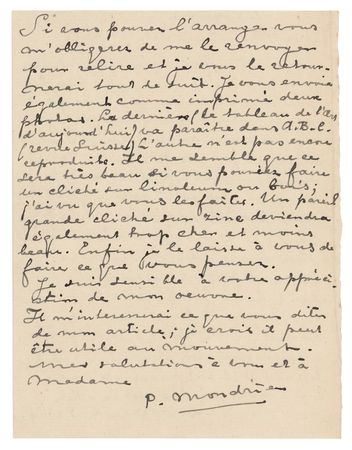 Si vous pouvez l'arranger vous
m'obligerez de me le renvoyer
pour relire et je vous le retour-
nerai tout de suit. Je vous envoie
également comme imprimé deux
photos. La dernière (le tableau de l'art
d'aujourd'hui) va paraître dans A.B.C.
(revue Suisse) L'autre n'est pas encore
reproduite. Il me semble que ce
sera très beau si vous pouviez faire
un cliché sur linoleum ou bois;
j'ai vu que vous les faites. Un pareil
grande cliché sur zinc deviendra
également trop cher et moins
beau. Enfin je le laisse à vous de
faire ce que vous pensez.
Je suis sensible à votre appréci-
ation de mon oeuvre.
Il m'interesserai ce que vous dites
de mon article; je crois il peut
être utile au mouvement.
Mes salutations à vous et à
Madame
P. Mondrian